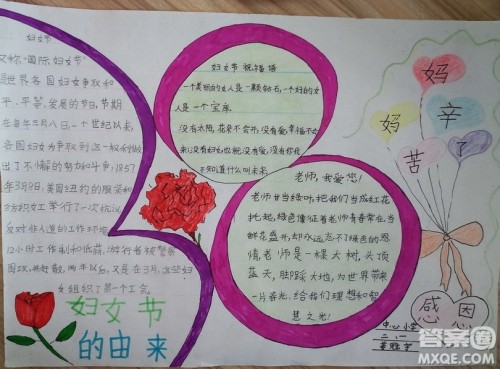 妇女节
又称"国际妇女节"
是世界各国妇女争取和
平、平等、发展的节日,节期
在每年三月八日,一个世纪以来,
各国妇女为争取到这一权利做
出了不懈的努力和斗争,1857
年3月8日,美国纽约的服装和
纺织女工举行了一次抗议
反对非人道的工作环境
12小时工作制和低薪,游行者被警察
围攻,并
两年以后,又是在3月,这些妇
女组织了第一个工会
妇女节
的由来
妇女节祝福语
一个美丽的女人是一颗钻石,一个好的女
人是一个宝库
没有太阳,花朵不会开,没有爱,幸福不会
来;没有妇女也就没有爱,没有你我
不知道什么叫未来
老师,我爱您!
老师甘当绿叶,把我们当成红花
托起,绿色像征着老师青春常在,当
鲜花盛开,却永远忘不了绿色的恩
情,老师是一棵大树,头顶
蓝天,脚踩大地,为世界带来
一片春光,给我们理想和智
慧之光!
妈
妈
辛
苦
了
感恩
中心小学
二、一
答案圈
MXQE.COM